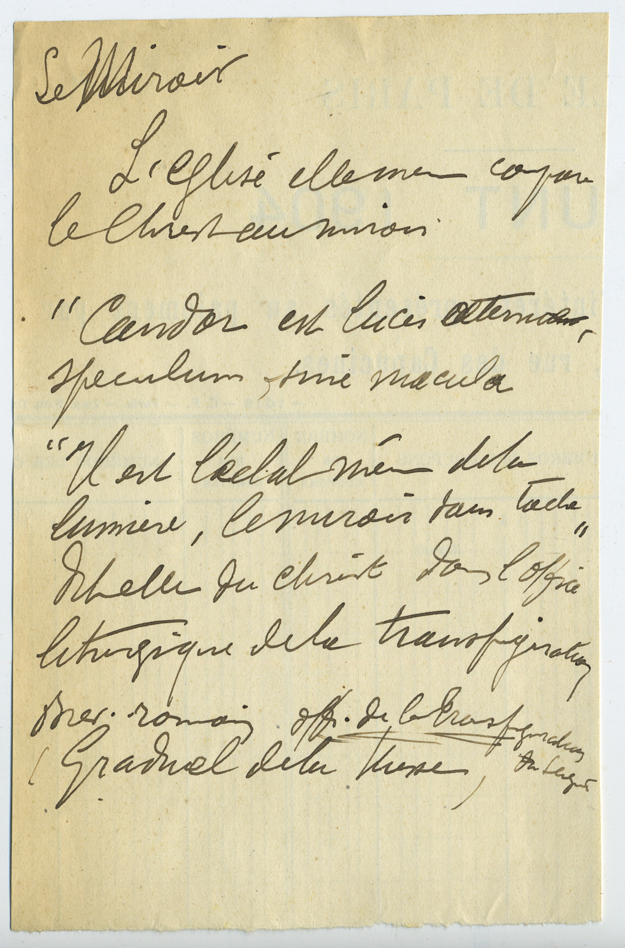 Le Miroir
L'Eglise elle meme compare
le Christ au miroir
"Candor est lucis aeternae,
speculum sine macula
"Il est l'éclat même de la
lumière, le miroir sans tache"
dit elle du Christ dans l'office
liturgique de la transfiguration
Brev. romain off. de la Transfiguration
(Graduel de la Messe)